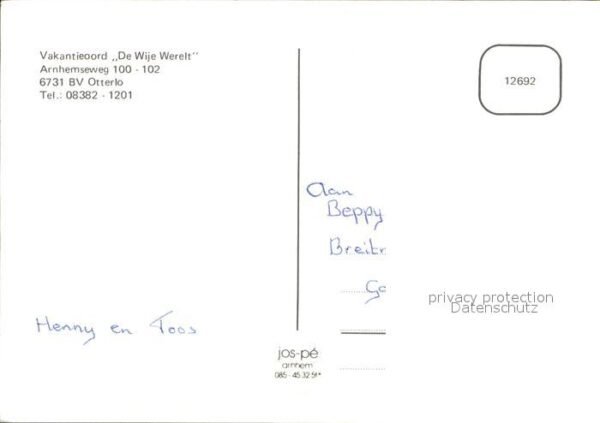 Vakantieoord „De Wije Werelt"
Arnhemseweg 100 - 102
6731 BV Otterlo
Tel.: 08382 - 1201
12692
Aan
Beppy
Henny en Toos
privacy protection
Datenschutz
jos-pé
arnhem